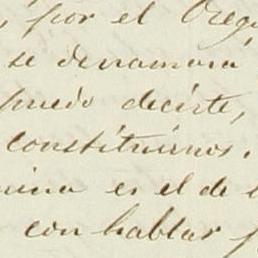 , por el Oreg
se denamora
puedo decirte,
constituirnos.
mina es el de l
con hablar p